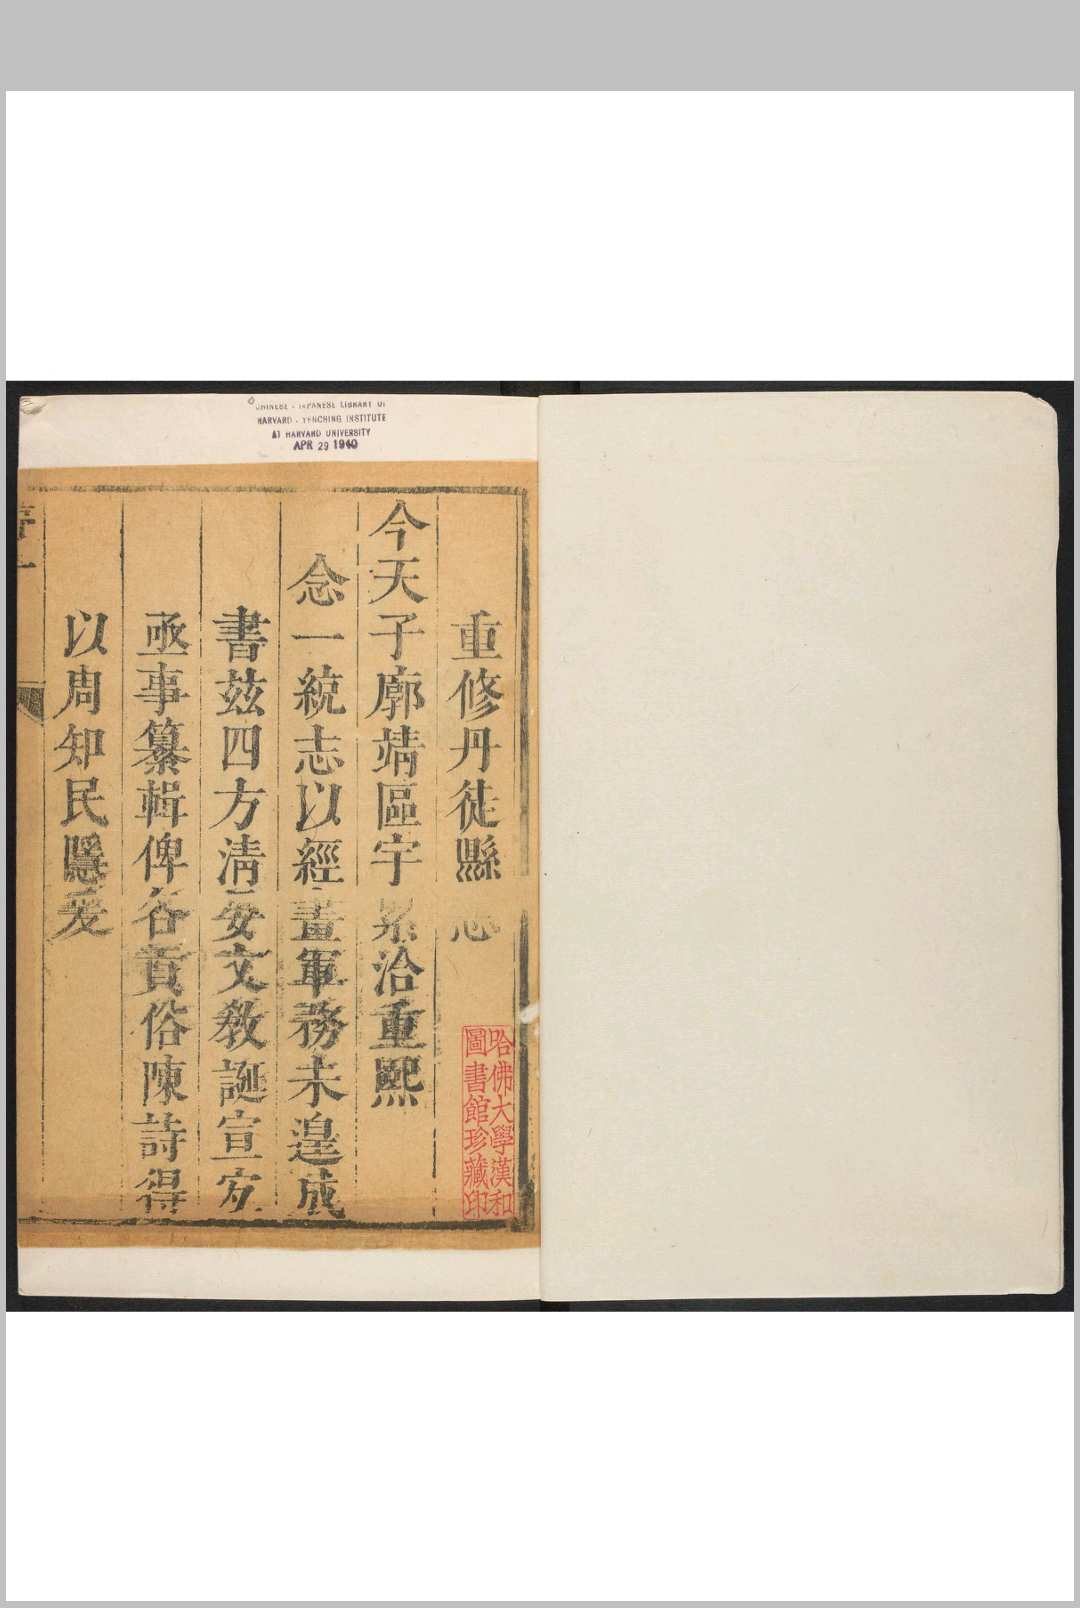 CHINESE - JAPANESE LIBRARY OF
HARVARD - YENCHING INSTITUTE
AT HARVARD UNIVERSITY
APR 29 1940
重修丹徒縣志
今天子廓靖區宇累洽重熙
念一統志以經畫軍務未遑成
書茲四方清晏文教誕宣
亟事纂輯俾各貢俗陳詩得
以周知民隱爰
哈佛大學漢和
圖書館珍藏印